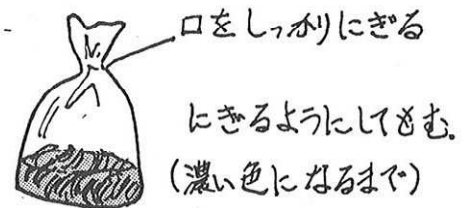 口をしっかりにぎる
にぎるようにしてもむ.
(濃い色になるまで)